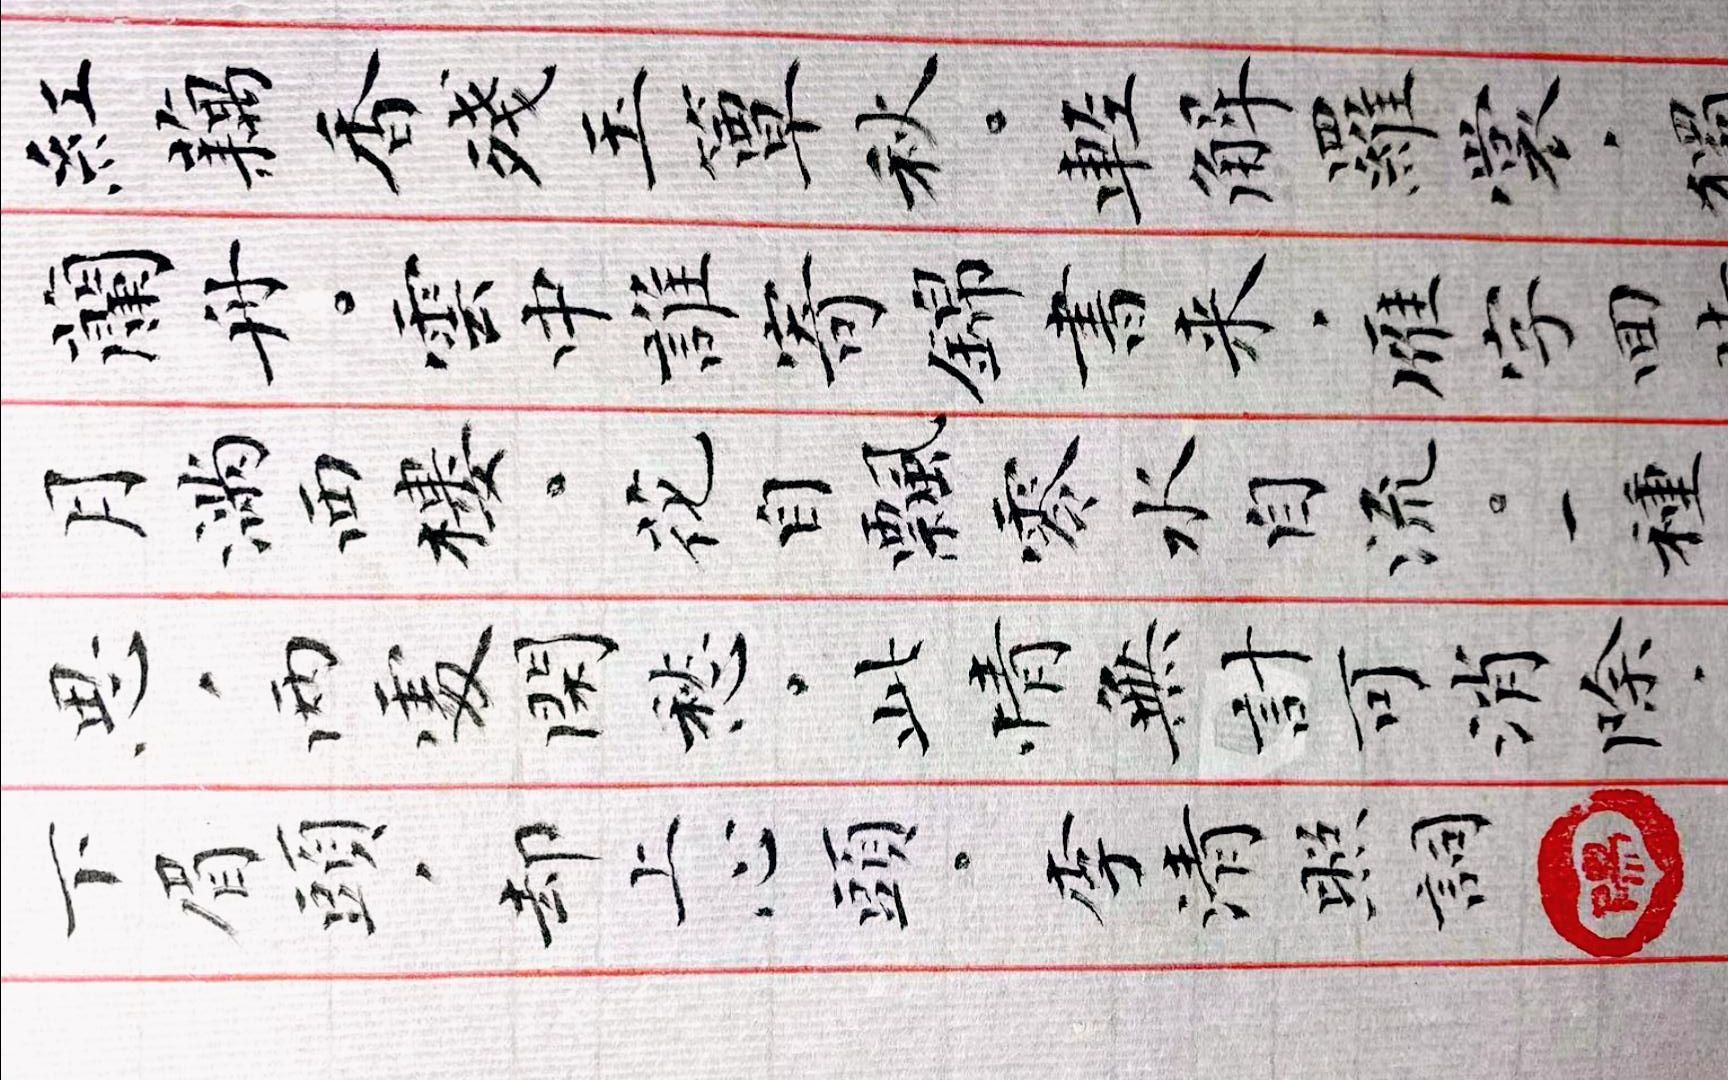 紅藕香殘玉簟秋。輕解羅裳，獨
蘭舟。雲中誰寄錦書来，雁字回
月滿西樓。花自飄零水自流。一種
思，两處閑愁，此情無計可消除，
下眉頭，却上心頭。李清照詞